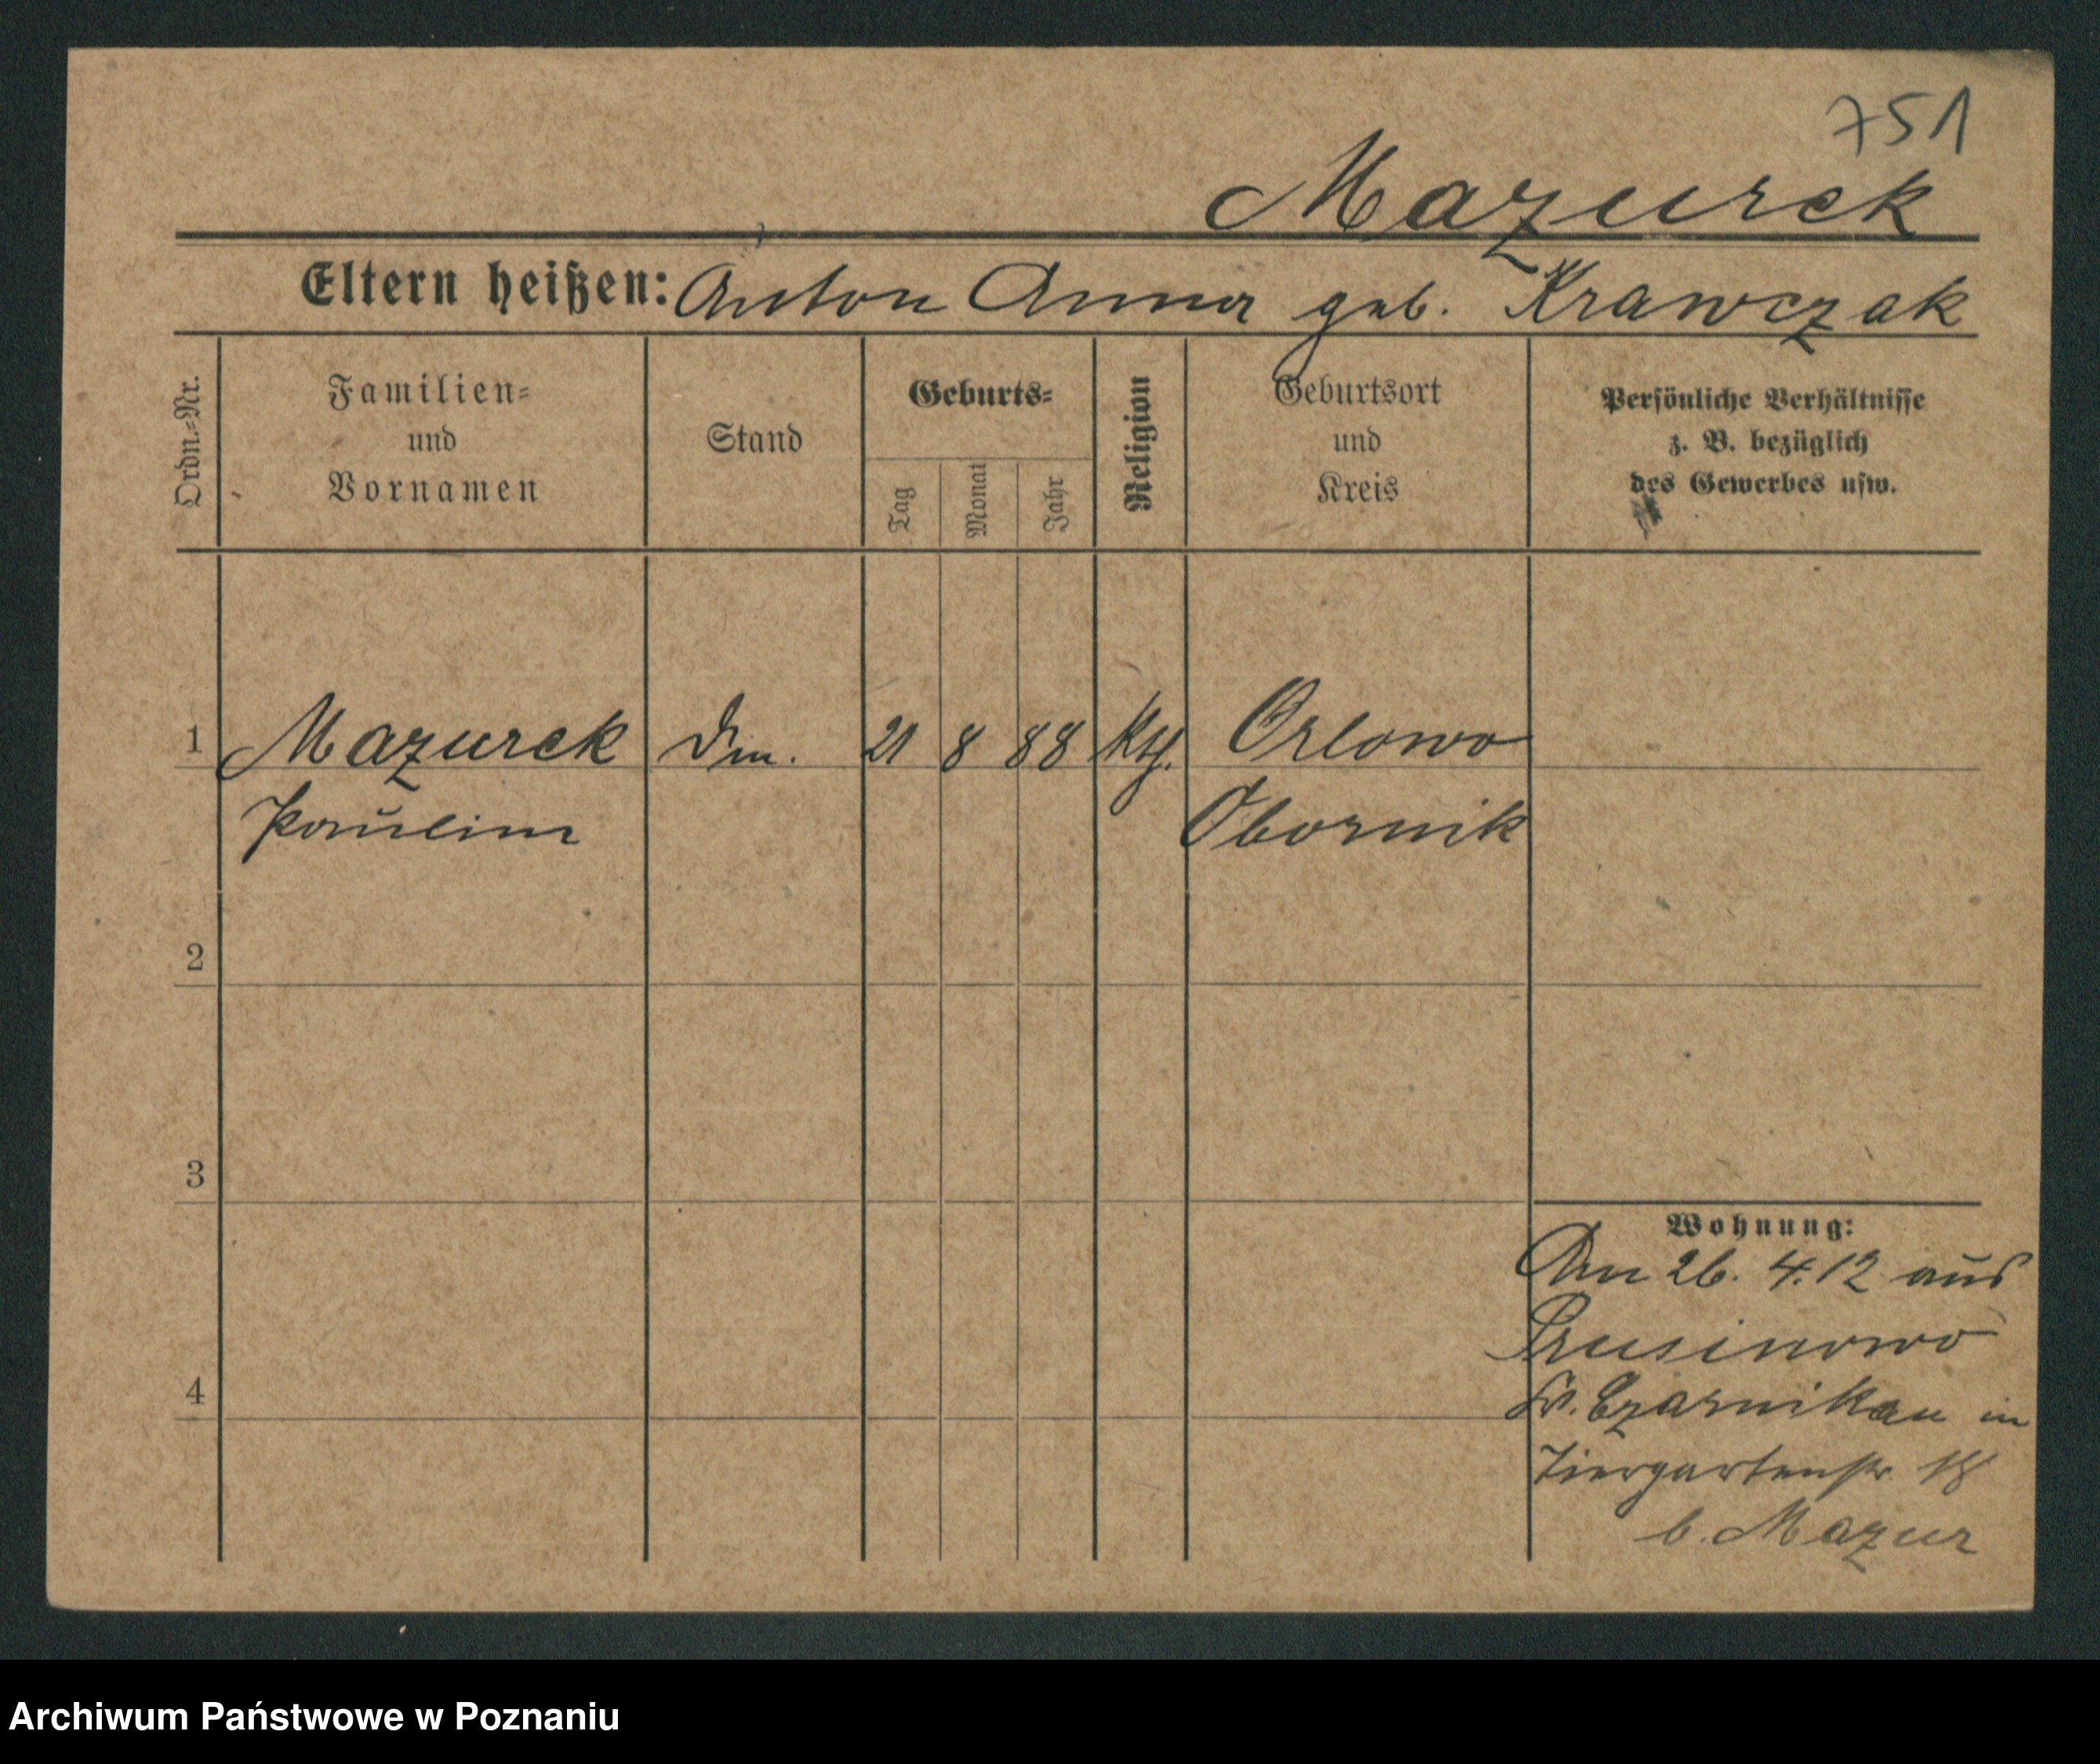 751
Mazurek
Eltern heißen: Anton Anna geb. Krawczak
Ordn.-Nr.
Familien-
und
Vornamen
Stand
Geburts-
Tag
Monat
Jahr
Religion
Geburtsort
und
Kreis
Persönliche Verhältnisse
z. B. bezüglich
des Gewerbes usw.
1 Mazurek 21 8 88 kth. Orlowo
Paulina Obornik
2
3
Wohnung:
Am 26. 4. 12 aus
Prusinowo
Kr. Czarnikau in
4
Tiergartenstr. 18
b. Mazur
Archiwum Państwowe w Poznaniu